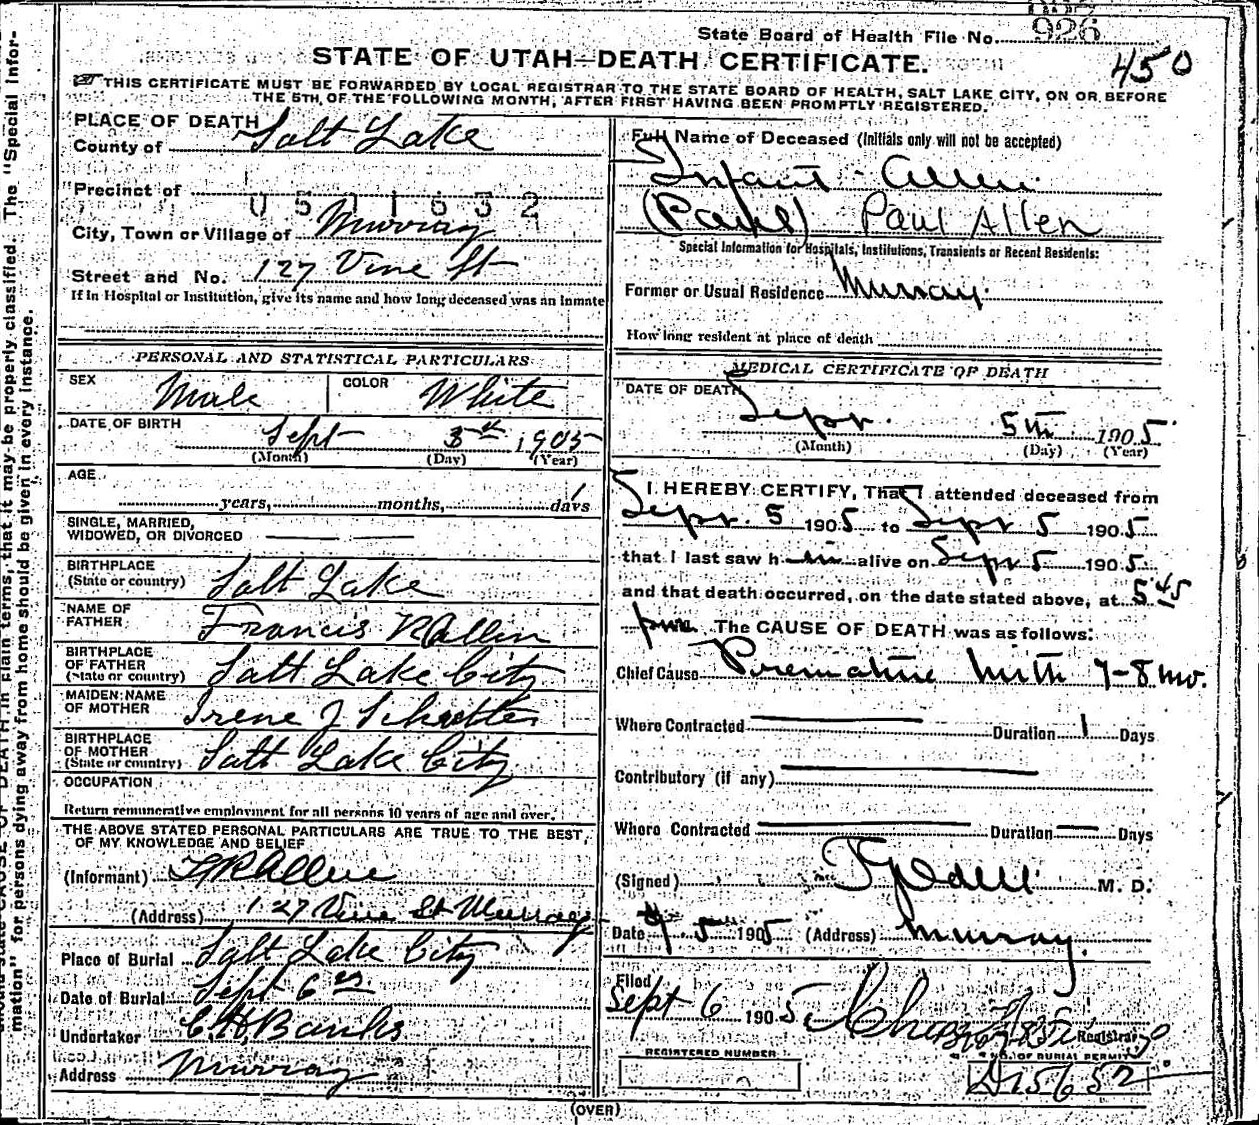 State Board of Health File No. 926
450
STATE OF UTAH—DEATH CERTIFICATE.
THIS CERTIFICATE MUST BE FORWARDED BY LOCAL REGISTRAR TO THE STATE BOARD OF HEALTH, SALT LAKE CITY, ON OR BEFORE
THE 5TH OF THE FOLLOWING MONTH, AFTER FIRST HAVING BEEN PROMPTLY REGISTERED.
PLACE OF DEATH
County of Salt Lake
Precinct of
0501632
City, Town or Village of Murray
Street and No. 127 Vine St
If in Hospital or Institution, give its name and how long deceased was an inmate
PERSONAL AND STATISTICAL PARTICULARS
SEX Male COLOR White
DATE OF BIRTH Sept 5th 1905
(Month) (Day) (Year)
AGE
years, months, 1 days
SINGLE, MARRIED,
WIDOWED, OR DIVORCED
BIRTHPLACE
(State or country) Salt Lake
NAME OF
FATHER Francis R Allen
BIRTHPLACE
OF FATHER
(State or country) Salt Lake City
MAIDEN NAME
OF MOTHER Irene J
BIRTHPLACE
OF MOTHER
(State or country) Salt Lake City
OCCUPATION
Return remunerative employment for all persons 10 years of age and over.
THE ABOVE STATED PERSONAL PARTICULARS ARE TRUE TO THE BEST
OF MY KNOWLEDGE AND BELIEF
(Informant) F R Allen
(Address) 127 Vine St Murray
Place of Burial Salt Lake City
Date of Burial Sept 6th
Undertaker Banks
Address Murray
Full Name of Deceased (Initials only will not be accepted)
Infant Allen
(Paul) Paul Allen
Special Information for Hospitals, Institutions, Transients or Recent Residents:
Former or Usual Residence Murray.
How long resident at place of death
MEDICAL CERTIFICATE OF DEATH
DATE OF DEATH
Sept. 5th 1905
(Month) (Day) (Year)
I HEREBY CERTIFY, That I attended deceased from
Sept. 5 1905 to Sept 5 1905
that I last saw him alive on Sept 5 1905
and that death occurred, on the date stated above, at 5 45
pm. The CAUSE OF DEATH was as follows:
Chief Cause Premature birth 7-8 mo.
Where Contracted Duration 1 Days
Contributory (if any)
Where Contracted Duration Days
(Signed) M. D.
Date 9. 5 1905 (Address) Murray.
Filed
Sept 6 1905 Registrar
REGISTERED NUMBER
NO. OF BURIAL PERMIT
D15652
(OVER)
CAUSE OF DEATH in plain terms, that it may be properly classified. The "Special Infor-
mation" for persons dying away from home should be given in every instance.